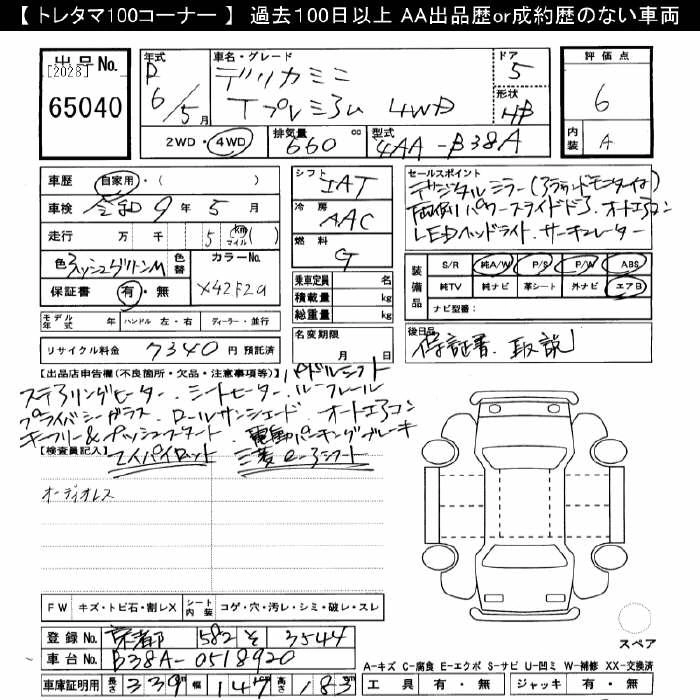 【 トレタマ100コーナー 】 過去100日以上 AA出品歴or成約歴のない車両
出品No.
[2028]
65040
年式 R 6/5月
車名・グレード デリカミニ
Tプレミアム 4WD
ドア 5
形状 HB
2WD・4WD 排気量 660cc 型式 4AA-B38A
評価点 6
内装 A
車歴 自家用・( )
車検 令和 9年 5月
走行 万 千 5 km マイル ( )
色 アッシュグリーンM 色替 カラーNo. X42F2a
保証書 有・無
モデル年式 年 ハンドル 左・右 ディーラー・並行
リサイクル料金 7340 円 預託済
シフト IAT
冷房 AAC
燃料 G
乗車定員 名
積載量 kg
総重量 kg
名変期限 月 日
セールスポイント
デジタルミラー(アラウンドモニター付)
両側パワースライドドア、オートエアコン
LEDヘッドライト、サーキュレーター
装備品 S/R 純A/W P/S P/W ABS
純TV 純ナビ 革シート 外ナビ エアB
ナビ型番:
後日品
保証書、取説
【出品店申告欄(不良箇所・欠品・注意事項等)】 パドルシフト
ステアリングヒーター、シートヒーター、ルーフレール
プライバシーガラス、ロールサンシェード、オートエアコン
キーフリー&プッシュスタート、電動パーキングブレーキ
【検査員記入】 マイパイロット 三菱e-アシスト
オーディオレス
FW キズ・トビ石・割レX シート内装 コゲ・穴・汚レ・シミ・破レ・スレ
登録No. 京都 582 そ 3544
車台No. B38A-0518920
車庫証明用 長さ 339 幅 147 高さ 183
スペア
A-キズ C-腐食 E-エクボ S-サビ U-凹ミ W-補修 XX-交換済
工具 有・無 ジャッキ 有・無